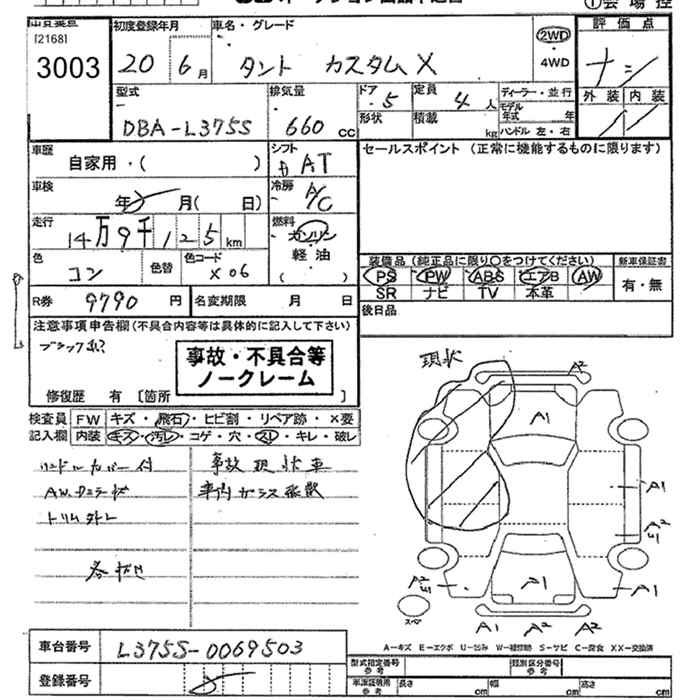 [2168]
3003
初度登録年月
20 6月
車名・グレード
タント カスタムX
2WD
・
4WD
評価点
外装 内装
型式
DBA-L375S
排気量
660 cc
ドア
5
形状
定員
4人
積載
kg
ディーラー・並行
モデル
年式 年
ハンドル 左・右
車歴
自家用・( )
シフト
AT
セールスポイント (正常に機能するものに限ります)
車検
年 月( 日)
冷房
A/C
走行
14万9千125km
燃料
ガソリン
軽油
( )
色
コン
色替
色コード
X06
装備品 (純正品に限り○をつけてください)
PS PW ABS エアB AW
SR ナビ TV 本革
新車保証書
有・無
R券
9790円
名変期限 月 日
後日品
注意事項申告欄(不具合内容等は具体的に記入して下さい)
事故・不具合等
ノークレーム
修復歴 有 [箇所 ]
現状
検査員
記入欄
FW キズ・飛石・ヒビ割・リペア跡・×要
内装 キズ・汚レ・コゲ・穴・スレ・キレ・破レ
ハンドルカバー付
事故現状車
車内ガラス飛散
トリム外レ
A2
A1
A1
A2
E1
A2
E1
A1
A1
A1 A2 A2
スペア
車台番号
L375S-0069503
登録番号
A-キズ E-エクボ U-凹み W-補修跡 S-サビ C-腐食 XX-交換済
型式指定番号
参考
類別区分番号
参考
車課証明用
参考
長さ cm
幅 cm
高さ cm